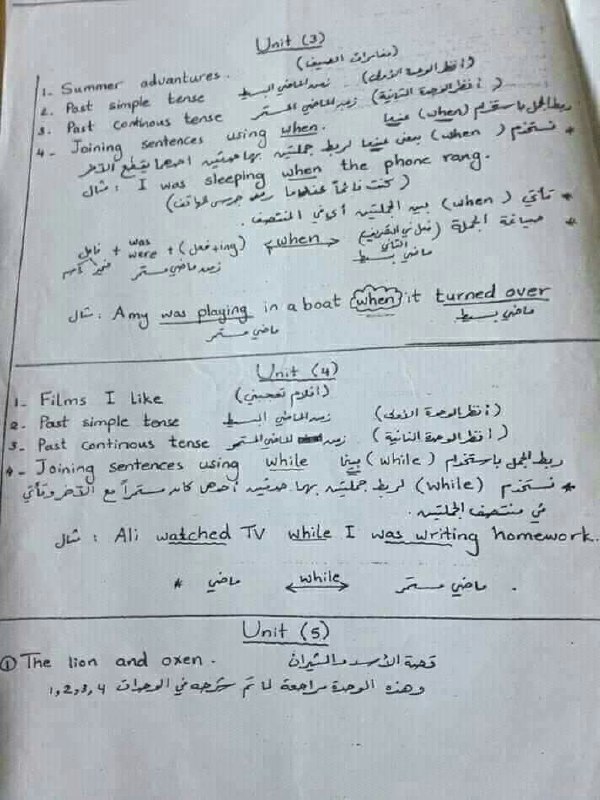 Unit (3)
1- Summer advantures. (مغامرات الصيف)
2. Past simple tense زمن الماضي البسيط (أنظر الوحدة الأولى)
3. Past continous tense زمن الماضي المستمر (أنظر الوحدة الثانية)
4- Joining sentences using when. ربط الجمل باستخدام (when) عندما
* نستخدم (when) بمعنى عندما لربط جملتين بهما حدثين احدهما يقطع الآخر
مثال : I was sleeping when the phone rang.
(كنت نائماً عندما رن جرس الهاتف)
* تأتي (when) بين الجملتين أي في المنتصف.
* صياغة الجملة
فاعل + was were + (فعل + ing) <when> (فعل في التصريف الثاني)
زمن ماضي مستمر ماضي بسيط
مثال : Amy was playing in a boat when it turned over
ماضي مستمر ماضي بسيط
Unit (4)
1- Films I like (أفلام تعجبني)
2. Past simple tense زمن الماضي البسيط (أنظر الوحدة الأولى)
3- Past continous tense زمن الماضي المستمر (أنظر الوحدة الثانية)
4- Joining sentences using while ربط الجمل باستخدام (while) بينما
* نستخدم (while) لربط جملتين بهما حدثين أحدهما كان مستمراً مع الآخر وتأتي
في منتصف الجملتين.
مثال : Ali watched TV while I was writing homework.
* ماضي <while> ماضي مستمر.
Unit (5)
① The lion and oxen. قصة الأسد والثيران
وهذه الوحدة مراجعة لما تم شرحه في الوحدات 1,2,3,4